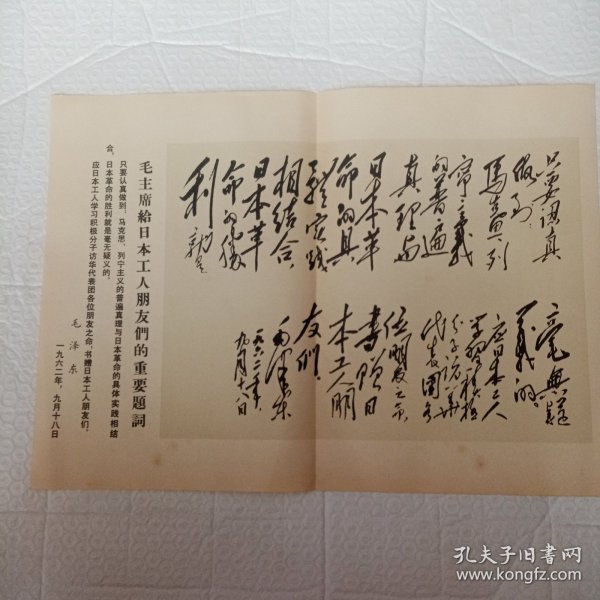 只要認真
做到,
馬克思、列
宁主義
的普遍
真理与
日本革
命的具
體实践
相結合,
日本革
命的勝
利就是
毫無疑
義的。
应日本工人
学習积極
分子访华
代表团各
位朋友之命,
書贈日
本工人朋
友们。
毛泽东
一九六二年,
九月十八日
毛主席給日本工人朋友們的重要題詞
只要认真做到,马克思、列宁主义的普遍真理与日本革命的具体实践相結
合,日本革命的胜利就是毫无疑义的。
应日本工人学习积极分子访华代表团各位朋友之命,书赠日本工人朋友们。
毛泽东
一九六二年,九月十八日
孔夫子旧书网
www.kongfz.com